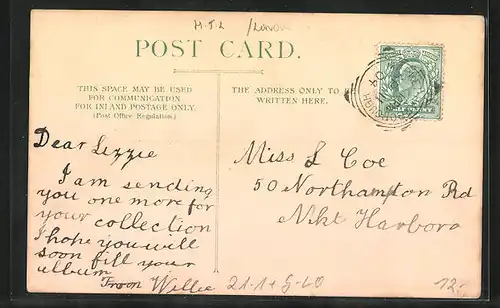 POST CARD.
THIS SPACE MAY BE USED
FOR COMMUNICATION
FOR INLAND POSTAGE ONLY.
(Post Office Regulation.)
THE ADDRESS ONLY TO
WRITTEN HERE.
Dear Lizzie
I am sending
you one more for
your collection
I hope you will
soon fill your
album
From Willie
Miss L Coe
50 Northampton Rd
Mkt Harboro
12.-